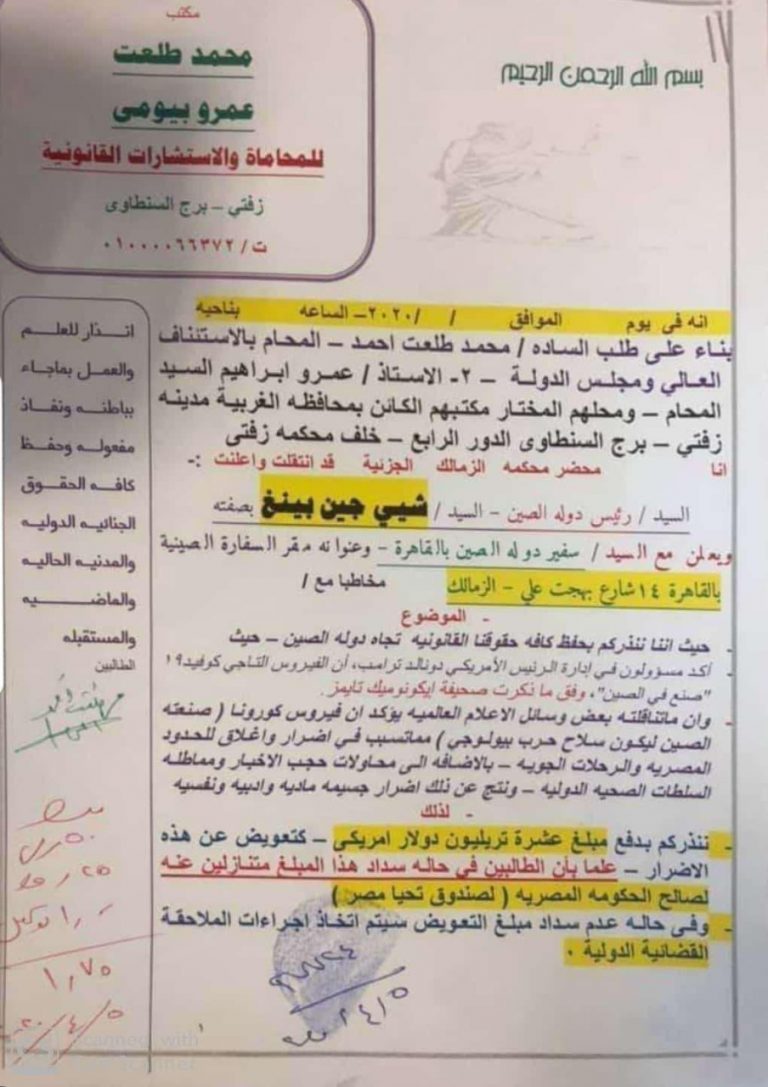 مكتب
محمد طلعت
عمرو بيومى
للمحاماة والاستشارات القانونية
زفتي – برج السنطاوى
ت / ٠١٠٠٠٠٦٦٣٧٢
بسم الله الرحمن الرحيم
انه فى يوم الموافق / /٢٠٢٠– الساعه بناحيه
بناء على طلب الساده / محمد طلعت احمد – المحام بالاستئناف
العالي ومجلس الدولة – ٢- الاستاذ / عمرو ابراهيم السيد
المحام – ومحلهم المختار مكتبهم الكائن بمحافظه الغربية مدينه
زفتي – برج السنطاوى الدور الرابع – خلف محكمه زفتى
انا محضر محكمه الزمالك الجزئية قد انتقلت واعلنت :-
السيد / رئيس دوله الصين – السيد / شيي جين بينغ بصفته
ويعلن مع السيد / سفير دوله الصين بالقاهرة – وعنوانه مقر السفارة الصينية
بالقاهرة ١٤ شارع بهجت علي – الزمالك مخاطبا مع /
- الموضوع
- حيث اننا ننذركم بحفظ كافه حقوقنا القانونيه تجاه دوله الصين – حيث
- أكد مسؤولون في إدارة الرئيس الأمريكي دونالد ترامب، أن الفيروس التاجي كوفيد١٩
"صنع في الصين"، وفق ما ذكرت صحيفة إيكونوميك تايمز.
- وان ماتناقلته بعض وسائل الاعلام العالميه يؤكد ان فيروس كورونا ( صنعته
الصين ليكون سلاح حرب بيولوجي ) مماتسبب في اضرار واغلاق للحدود
المصريه والرحلات الجويه – بالاضافه الى محاولات حجب الاخبار ومماطله
السلطات الصحيه الدوليه – ونتج عن ذلك اضرار جسيمه ماديه وادبيه ونفسيه
- لذلك
- ننذركم بدفع مبلغ عشرة تريليون دولار امريكى – كتعويض عن هذه
الاضرار – علما بأن الطالبين في حاله سداد هذا المبلغ متنازلين عنه
لصالح الحكومه المصريه ( لصندوق تحيا مصر )
- وفى حاله عدم سداد مبلغ التعويض سيتم اتخاذ اجراءات الملاحقة
القضائية الدولية ٠
انذار للعلم
والعمل بماجاء
بباطنه ونفاذ
مفعوله وحفظ
كافه الحقوق
الجنائيه الدوليه
والمدنيه الحاليه
والماضيه
والمستقبله
الطالبين
١,٧٥
٢٠/٤/٥
Scanned with
Scanner